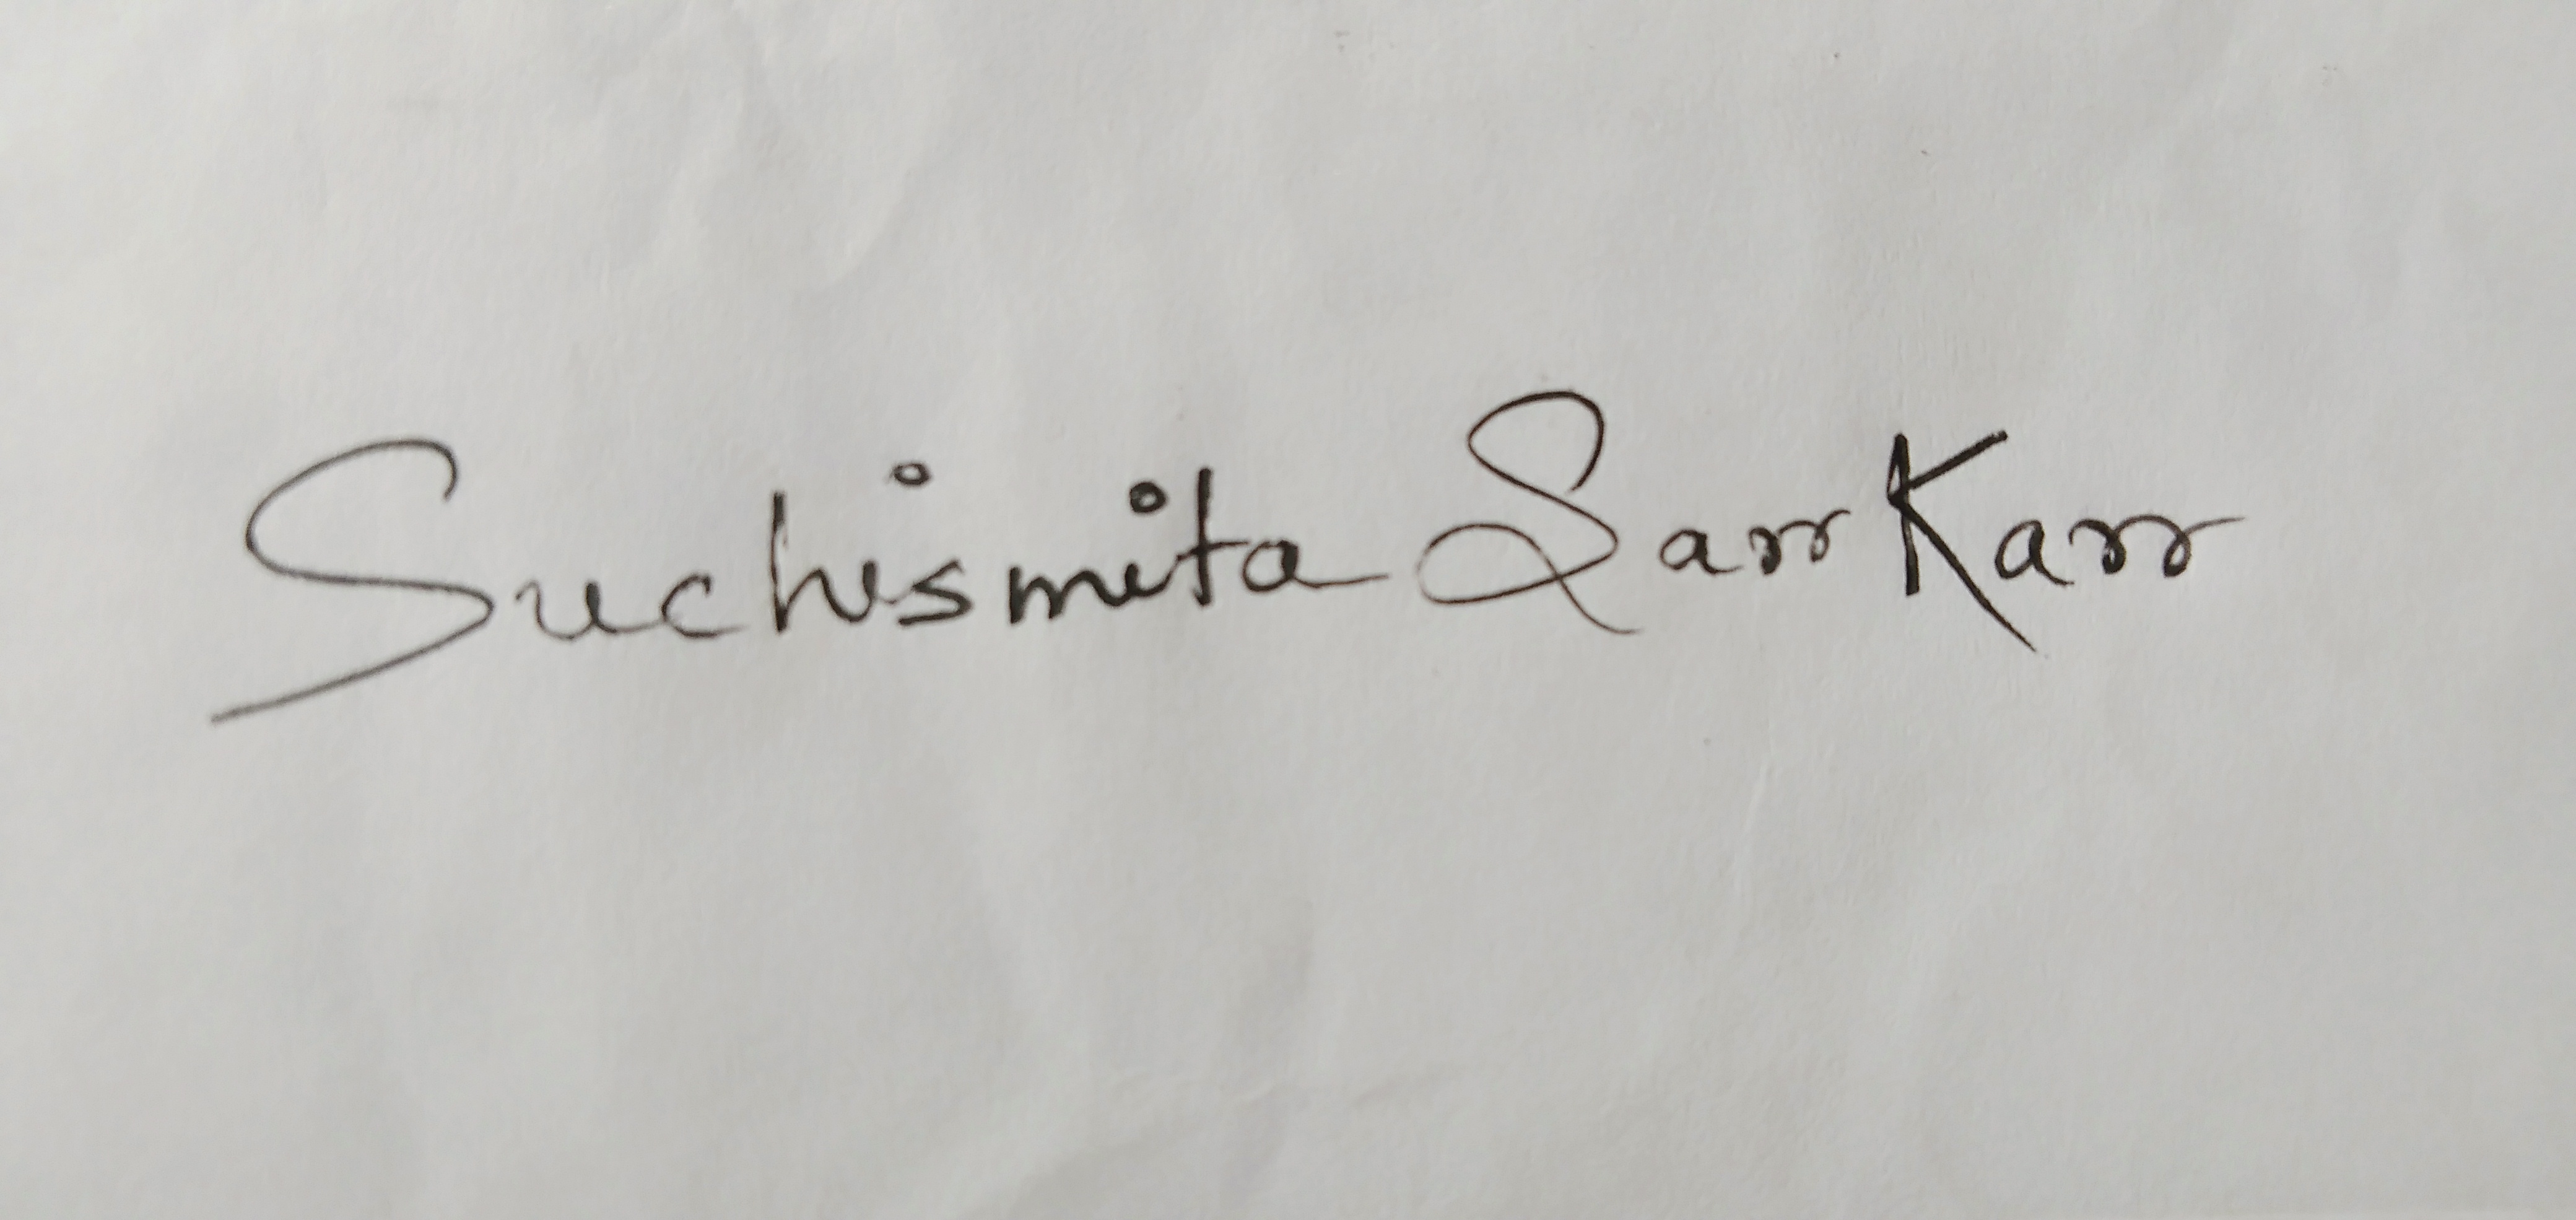 Suchismita Sarkar